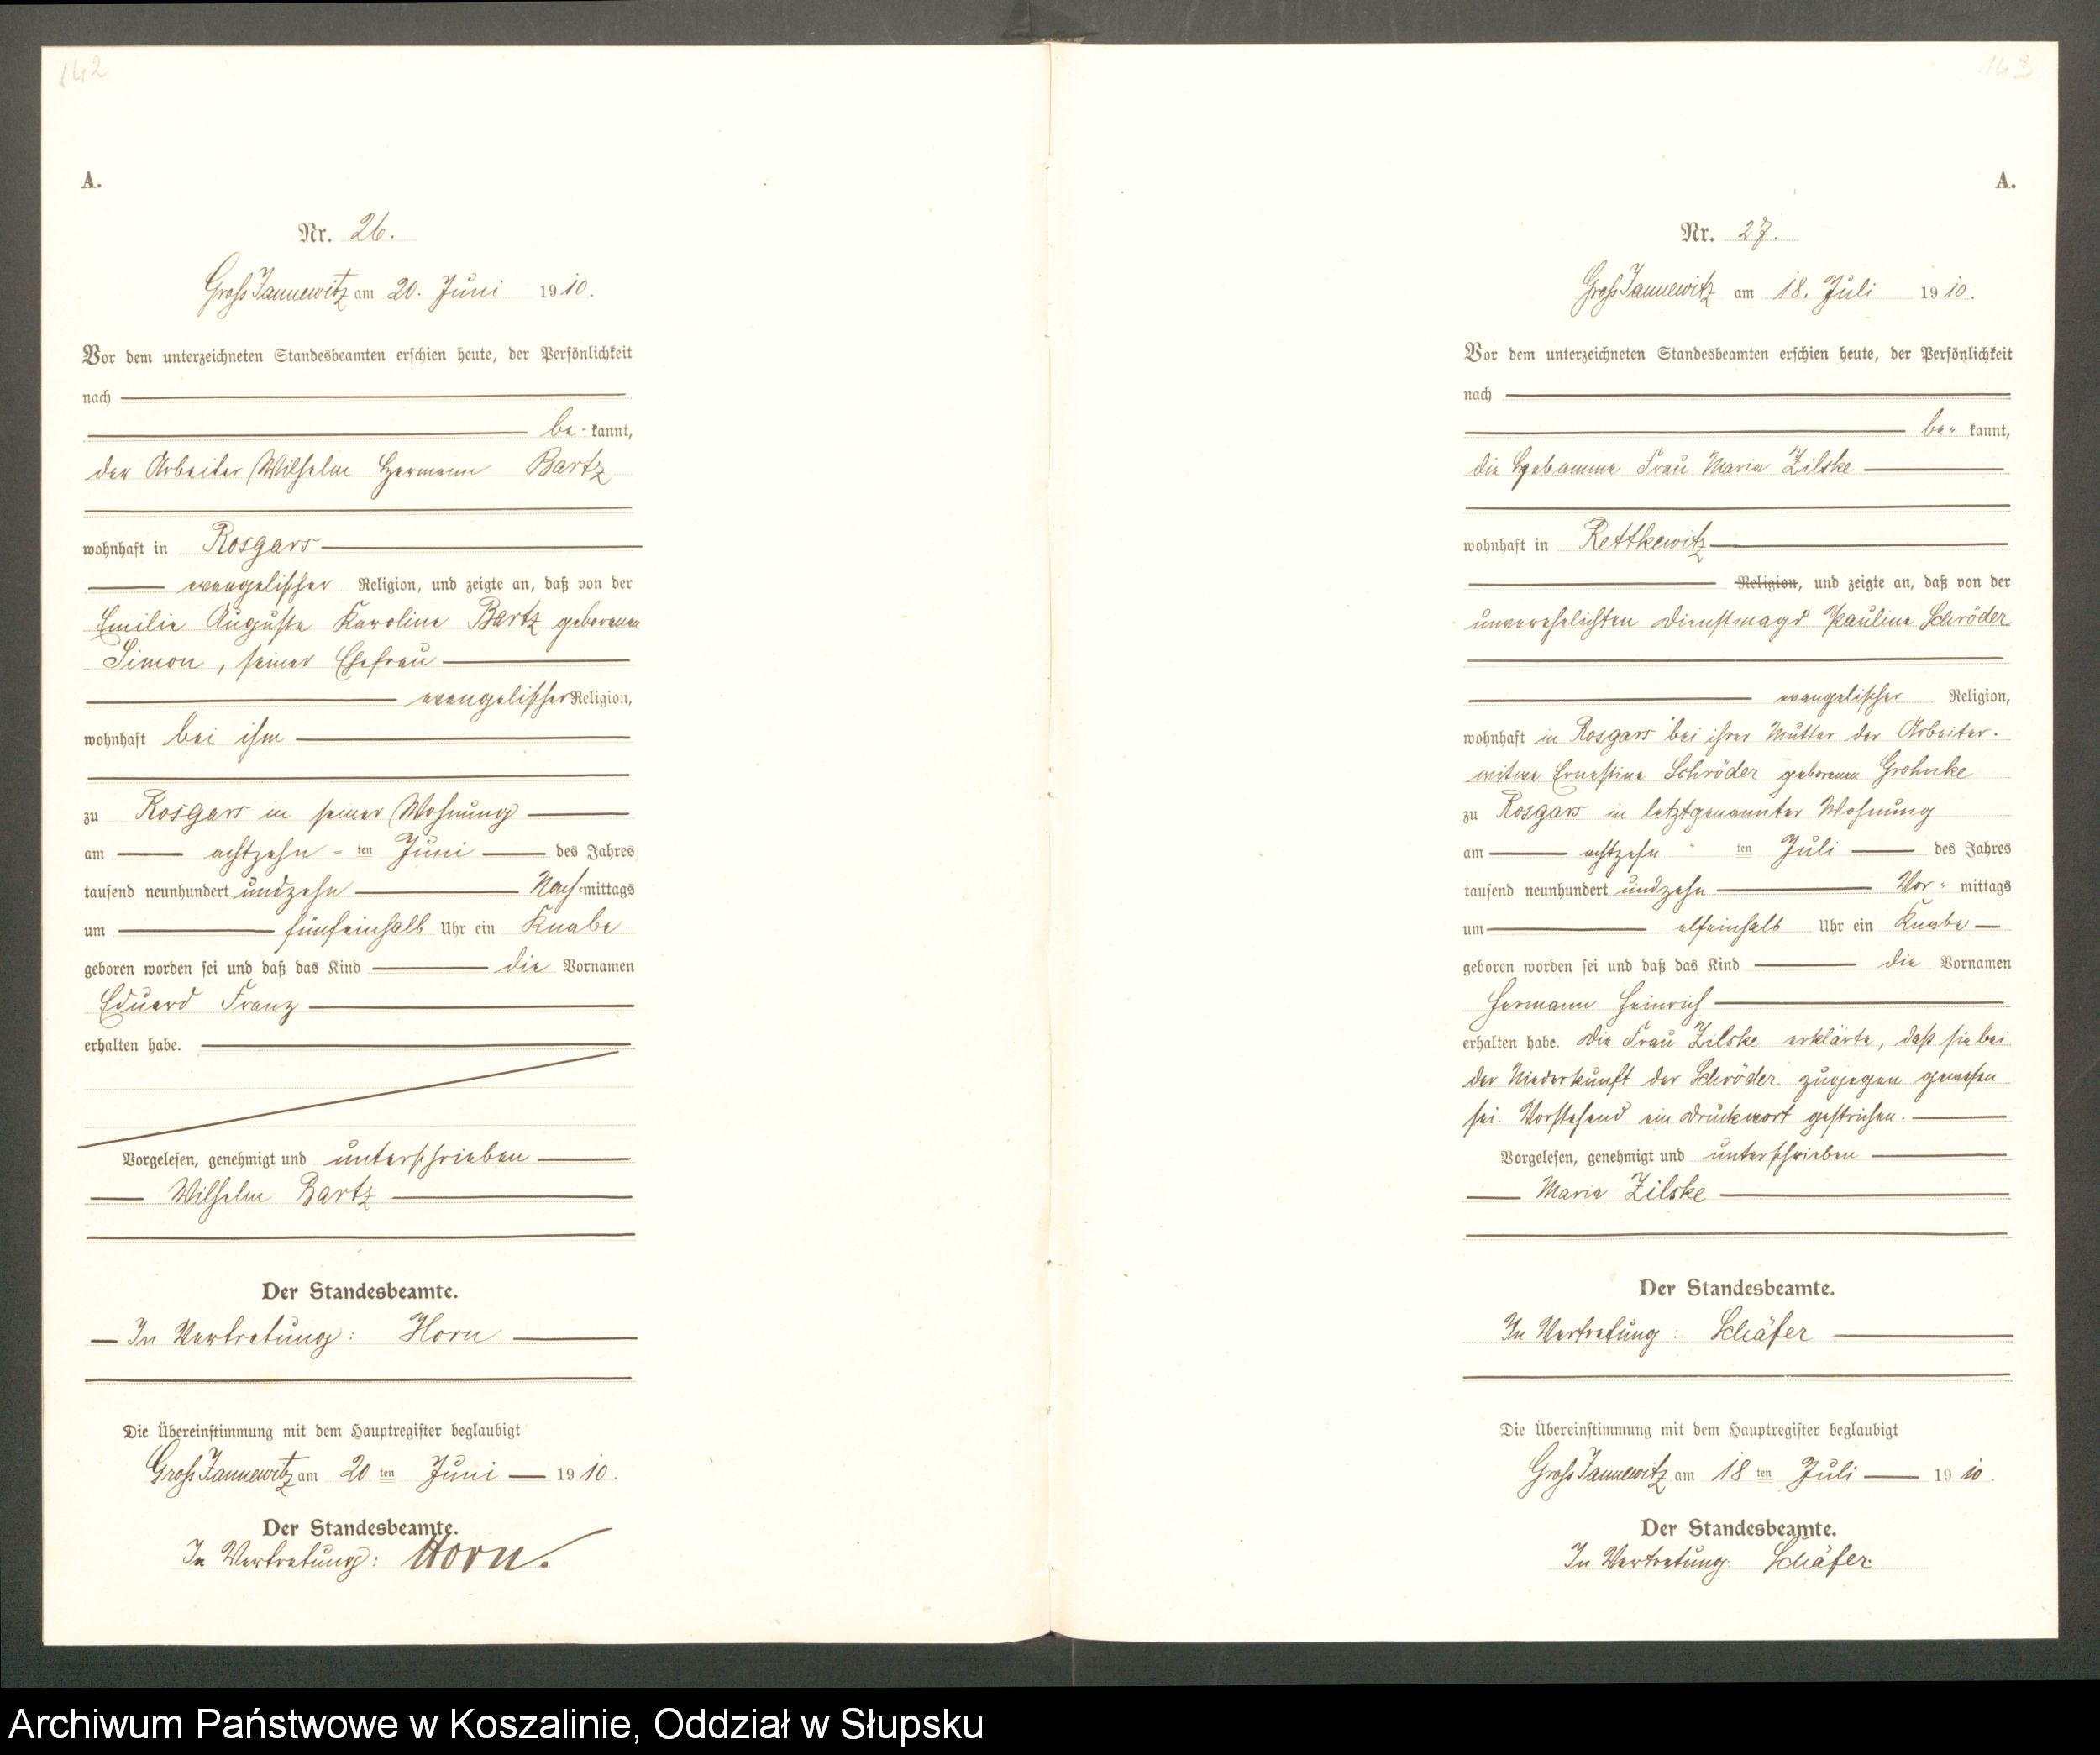 142
A.
Nr. 26.
Groß Jannewitz am 20. Juni 1910.
Vor dem unterzeichneten Standesbeamten erschien heute, der Persönlichkeit
nach
be- kannt,
der Arbeiter Wilhelm Hermann Bartz
wohnhaft in Rosgars
evangelischer Religion, und zeigte an, daß von der
Emilie Auguste Karoline Bartz geborenen
Simon, seiner Ehefrau
evangelischer Religion,
wohnhaft bei ihm
zu Rosgars in seiner Wohnung
am achtzehn - ten Juni des Jahres
tausend neunhundert undzehn Nach-mittags
um fünfeinhalb Uhr ein Knabe
geboren worden sei und daß das Kind die Vornamen
Eduard Franz
erhalten habe.
Vorgelesen, genehmigt und unterschrieben
Wilhelm Bartz
Der Standesbeamte.
In Vertretung: Horn
Die Übereinstimmung mit dem Hauptregister beglaubigt
Groß Jannewitz am 20 ten Juni 1910.
Der Standesbeamte.
In Vertretung: Horn.
143
A.
Nr. 27.
Groß Jannewitz am 18. Juli 1910.
Vor dem unterzeichneten Standesbeamten erschien heute, der Persönlichkeit
nach
be- kannt,
die Hebamme Frau Maria Zilske
wohnhaft in Rettkewitz
Religion, und zeigte an, daß von der
unverehelichten Dienstmagd Pauline Schröder
evangelischer Religion,
wohnhaft in Rosgars bei ihrer Mutter der Arbeiter-
witwe Ernestine Schröder geborenen Grohnke
zu Rosgars in letztgenannter Wohnung
am achtzehn - ten Juli des Jahres
tausend neunhundert undzehn Vor- mittags
um elfeinhalb Uhr ein Knabe
geboren worden sei und daß das Kind die Vornamen
Hermann Heinrich
erhalten habe. Die Frau Zilske erklärte, daß sie bei
der Niederkunft der Schröder zugegen gewesen
sei. Vorstehend ein Druckwort gestrichen.
Vorgelesen, genehmigt und unterschrieben
Maria Zilske
Der Standesbeamte.
In Vertretung: Schäfer
Die Übereinstimmung mit dem Hauptregister beglaubigt
Groß Jannewitz am 18 ten Juli 1910.
Der Standesbeamte.
In Vertretung: Schäfer.
Archiwum Państwowe w Koszalinie, Oddział w Słupsku